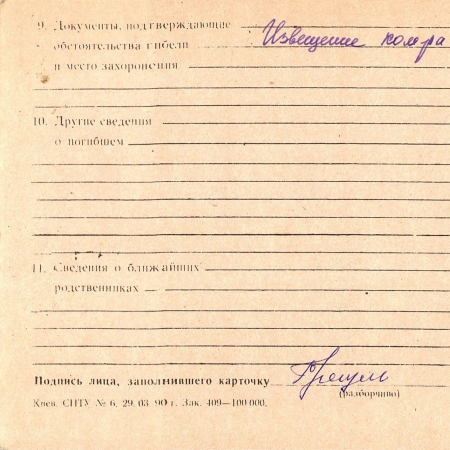 9. Документы, подтверждающие
обстоятельства гибели Извещение комра
и место захоронения
10. Другие сведения
о погибшем
11. Сведения о ближайших
родственниках
Подпись лица, заполнившего карточку
(разборчиво)
Киев. СПТУ № 6. 29. 03. 90 г. Зак. 409—100 000.